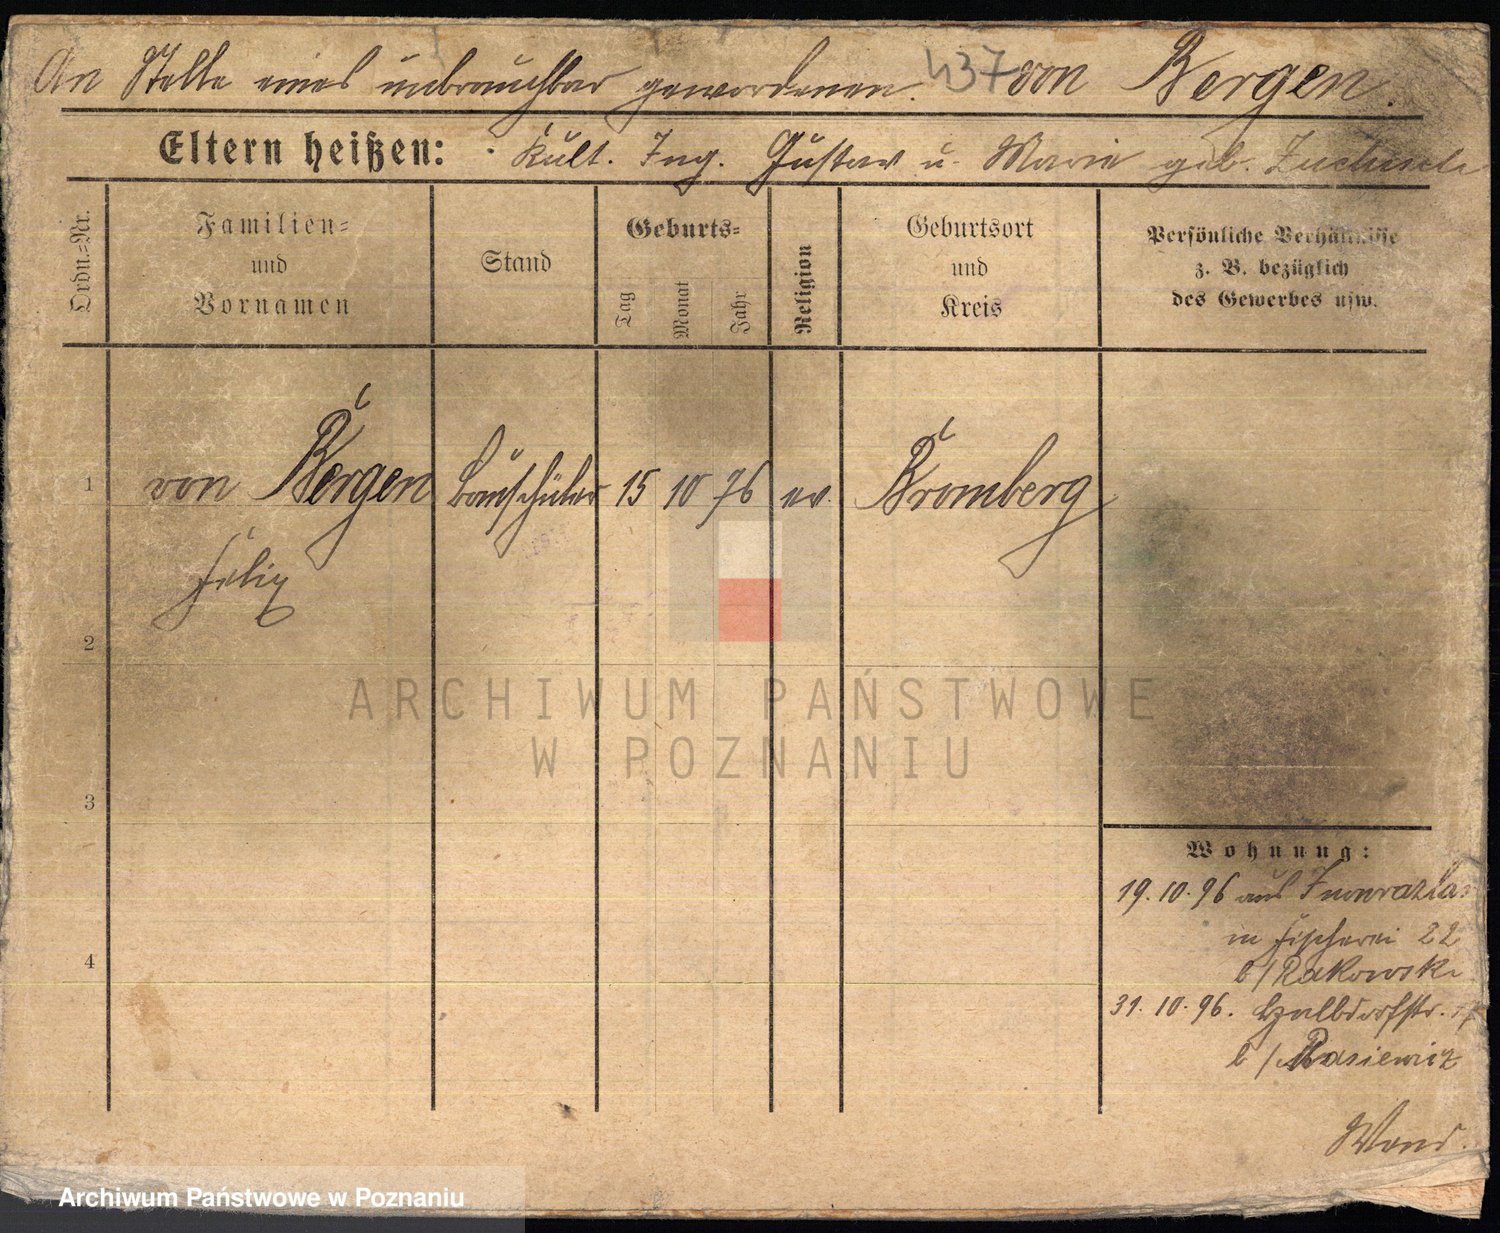 An Stelle eines unbrauchbar gewordenen. 437 von Bergen.
Eltern heißen: Kult. Ing. Gustav u. Marie geb.
Ordn.-Nr.
Familien-
und
Vornamen
Stand
Geburts-
Tag
Monat
Jahr
Religion
Geburtsort
und
Kreis
Persönliche Verhältnisse
z. B. bezüglich
des Gewerbes usw.
1 von Bergen Bauschüler 15 10 76 ev. Bromberg
Felix
2
3
4
Wohnung:
19.10.96 aus Inowrazlaw
in Fischerei 22
b/Rakowski
31.10.96. Halbdorfstr.
b/Rasiewicz
ARCHIWUM PAŃSTWOWE
W POZNANIU
Archiwum Państwowe w Poznaniu